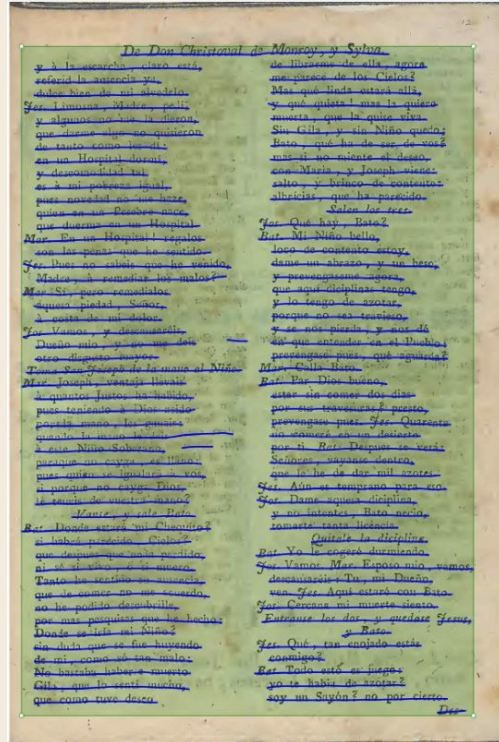 De Don Christoval de Monroy, y Sylva.
y à la escarcha, claro está,
referid la ausencia ya,
dulce bien de mi alvedrio.
Jes. Limosna, Madre, pedí,
y algunos no me la dieron,
que darme algo no quisieron
de tanto como les dí:
en un Hospital dormí,
y descomodidad tal
es à mi pobreza igual,
pues novedad no me haze,
quien en un Pesebre nace,
que duerma en un Hospital.
Mar. En un Hospital! regalos
son las penas que he sentido.
Jes. Pues no sabeis que he venido,
Madre, à remediar los malos?
Mar. Sì, pero remedialos
aquesa piedad, Señor,
à costa de mi dolor.
Jes. Vamos, y descansaréis,
Dueño mio, y no me deis
otro disgusto mayor.
Toma San Joseph de la mano al Niño.
Mar. Joseph, ventaja llevais
à quantos Justos ha habido,
pues teniendo à Dios asido
à este Niño Soberano,
porque no cayga, es llano:
pues quien se igualará à vos,
si porque no cayga Dios,
le teneis de vuestra mano?
Vanse, y sale Bato.
Bat. Donde estará mi Chequito?
si habrá parecido, Cielos?
que despues que anda perdido,
ni sé si vivo, ni si muero.
Tanto he sentido su ausencia,
que de comer no me acuerdo,
no he podido descubrille,
por mas pesquisas que he hecho:
Donde se iria mi Niño?
sin duda que se fue huyendo
de mi, como soy tan malo:
No bastaba haberse muerto
Gila, que lo sentí mucho,
que como tuve deseo
de librarme de ella, agora
me parece de los Cielos?
Mas qué linda estará allá,
y qué quieta! mas la quiero
muerta, que la quise viva.
Sin Gila, y sin Niño quedo;
Bato, qué ha de ser de vos?
mas si no miente el deseo,
con Maria, y Joseph viene:
salto, y brinco de contento:
albricias, que ha parecido.
Salen los tres.
Jes. Qué hay, Bato?
Bat. Mi Niño bello,
loco de contento estoy,
dame un abrazo, y un beso,
y prevengase agora,
que aqui diciplinas tengo,
y lo tengo de azotar,
porque no sea travieso,
y se nos pierda, y nos dé
en que entender en el Pueblo;
prevengase pues, qué aguarda?
Mar. Calla Bato.
Bat. Par Dios bueno,
estar sin comer dos dias
por sus travesuras? presto,
prevengase pues. Jes. Quarenta
no comeré en un desierto
por tí. Bat. Despues se verá:
Señores, vayanse dentro,
que le he de dar mil azotes.
Jes. Aún es temprano para eso.
Jos. Dame aquesa diciplina,
y no intentes, Bato necio,
tomarte tanta licencia.
Quitale la diciplina.
Bat. Yo le cogeré durmiendo.
Jos. Vamos. Mar. Esposo mio, vamos,
descansaréis: Tu, mi Dueño,
ven. Jes. Aqui estaré con Bato.
Jos. Cercana mi muerte siento.
Entranse los dos, y quedase Jesus,
y Bato.
Jes. Qué, tan enojado estás
conmigo?
Bat. Todo esto es juego:
yo te habia de azotar?
soy un Sayón? no por cierto.
Des-